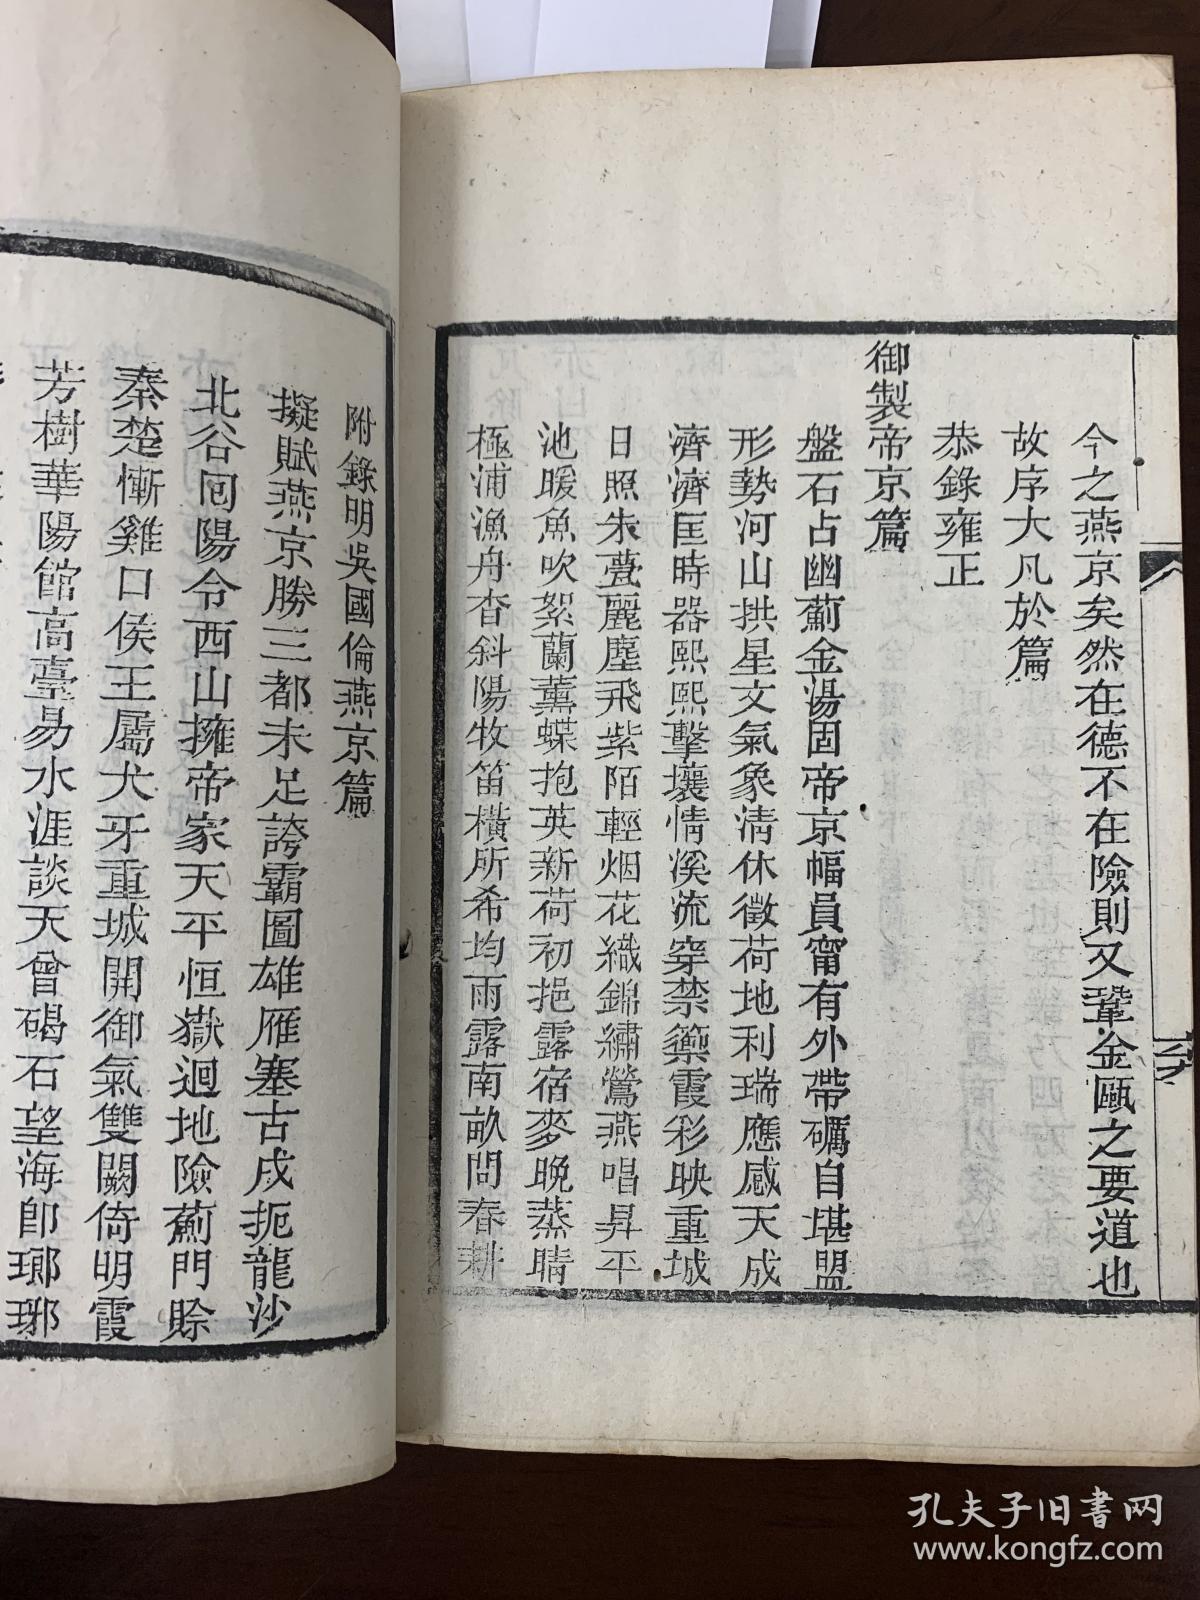 今之燕京矣然在德不在險則又鞏金甌之要道也
故序大凡於篇
恭錄雍正
御製帝京篇
盤石占幽薊金湯固帝京幅員甯有外帶礪自堪盟
形勢河山拱星文氣象清休徵荷地利瑞應感天成
濟濟匡時器熙熙擊壤情溪流穿禁籞霞彩映重城
日照朱甍麗塵飛紫陌輕烟花織錦繡鶯燕唱昇平
池暖魚吹絮蘭薰蝶抱英新荷初挹露宿麥晚蒸晴
極浦漁舟杳斜陽牧笛橫所希均雨露南畝問春耕
附錄明吳國倫燕京篇
擬賦燕京勝三都未足誇霸圖雄雁塞古戍扼龍沙
北谷回陽令西山擁帝家天平恒嶽迴地險薊門賒
秦楚慚雞口侯王屬犬牙重城開御氣雙闕倚明霞
芳樹華陽館高臺易水涯談天曾碣石望海卽瑯琊
孔夫子旧书网
www.kongfz.com